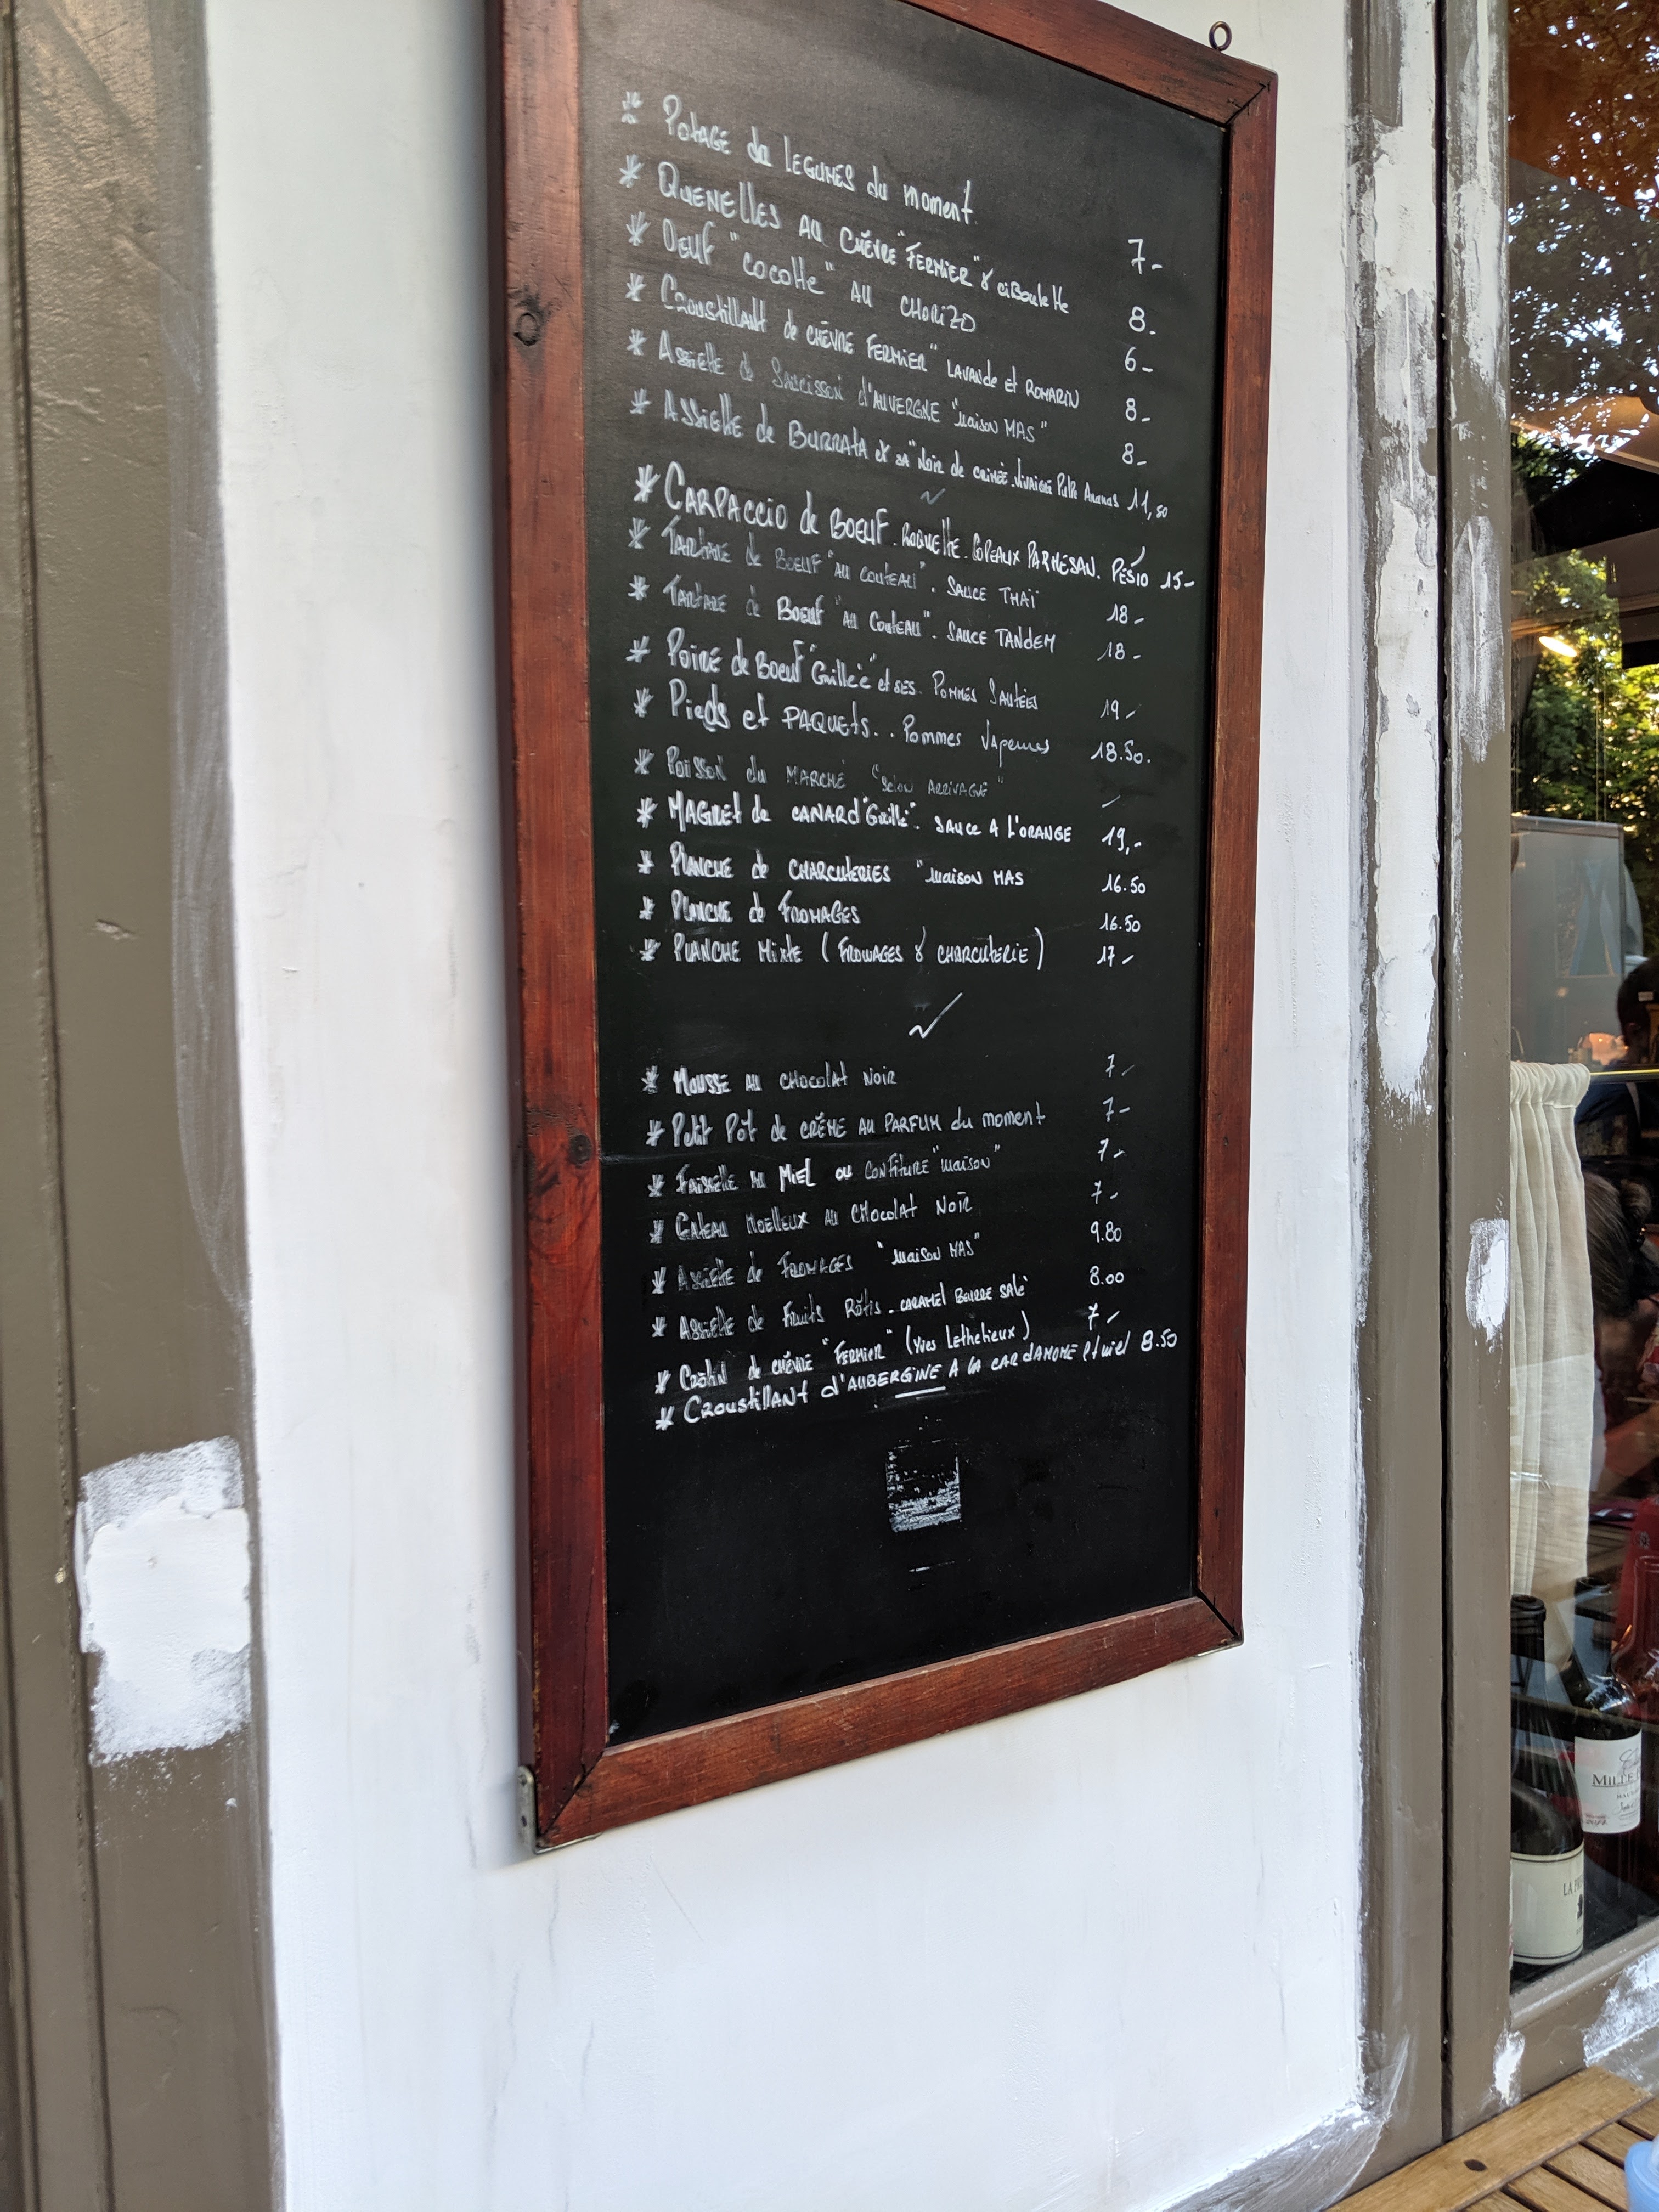 * Potage de LEGUMES du moment 7-
* QUENELLES AU CHÈVRE "FERMIER" & ciboulette 8.
* Oeuf "cocotte" AU CHORIZO 6-
* Croustillant de CHÈVRE FERMIER" LAVANde et ROMARIN 8-
* Assiette de Saucisson d'AUVERGNE "Maison MAS" 8-
* Assiette de BURRATA et sa "Noir de crimée. Vinaigre Pulpe Ananas 11,50
* CARPACCIO de BOEUF. ROQUETTE. COPEAUX PARMESAN. PÉSTO 15-
* TARTARE de BOEUF "AU COUTEAU". SAUCE THAÏ 18-
* TARTARE de Boeuf "AU COUTEAU". SAUCE TANDEM 18-
* Poire de Boeuf "Grillée" et SES. POMMES SAUTÉES 19-
* Pieds et PAQUETS.. Pommes Vapeures 18.50.
* Poisson du MARCHÉ "Selon ARRIVAGE" -
* MAGRET de CANARD "Grillé". SAUCE A L'ORANGE 19,-
* PLANCHE de CHARCUTERIES "Maison MAS 16.50
* PLANCHE de FROMAGES 16.50
* PLANCHE Mixte (FROMAGES & CHARCUTERIE) 17-
* MOUSSE AU CHOCOLAT NOIR 7-
* Petit Pôt de CRÈME AU PARFUM du moment 7-
* FAISSELLE AU MIEL ou CONFITURE "Maison" 7-
* GATEAU MOELLEUX AU CHOCOLAT NOIR 7-
* Assiette de FROMAGES "Maison MAS" 9.80
* Assiette de Fruits Rôtis. CARAMEL BEURRE SALÉ 8.00
* Crôtin de CHÈVRE "FERMIER" (Yves Lethelieux) 7-
* CROUSTILLANT d'AUBERGINE A LA CARDAMOME et miel 8.50
MILLE
LA